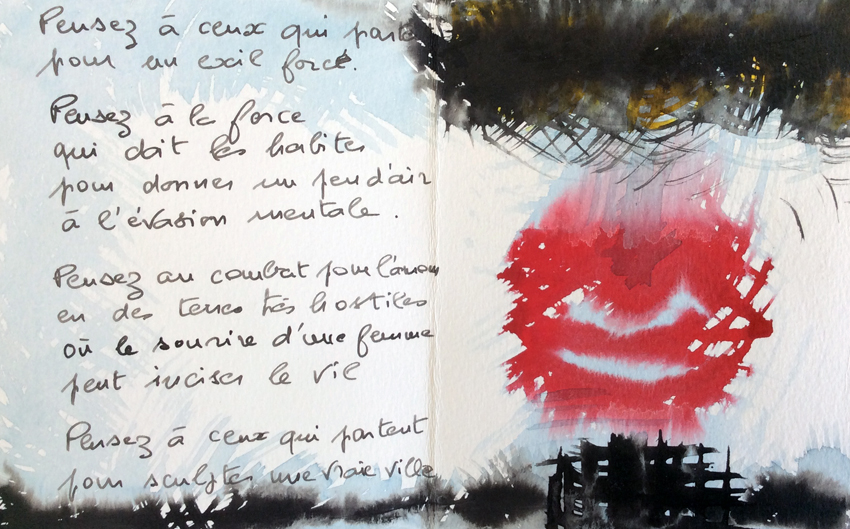 Pensez à ceux qui partent
pour un exil forcé.
Pensez à la force
qui doit les habiter
pour donner un peu d'air
à l'évasion mentale.
Pensez au combat pour l'amour
en des terres très hostiles
où le sourire d'une femme
peut inciser le vil
Pensez à ceux qui partent
pour sculpter une vraie ville